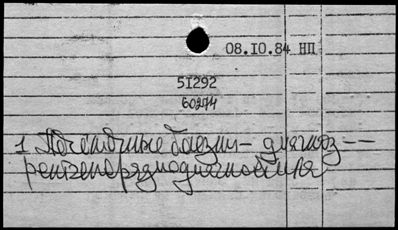 08.IO.84 НП
5I292
60274
1 Почечные болезни - диагноз --
рентгенорадиодиагностика